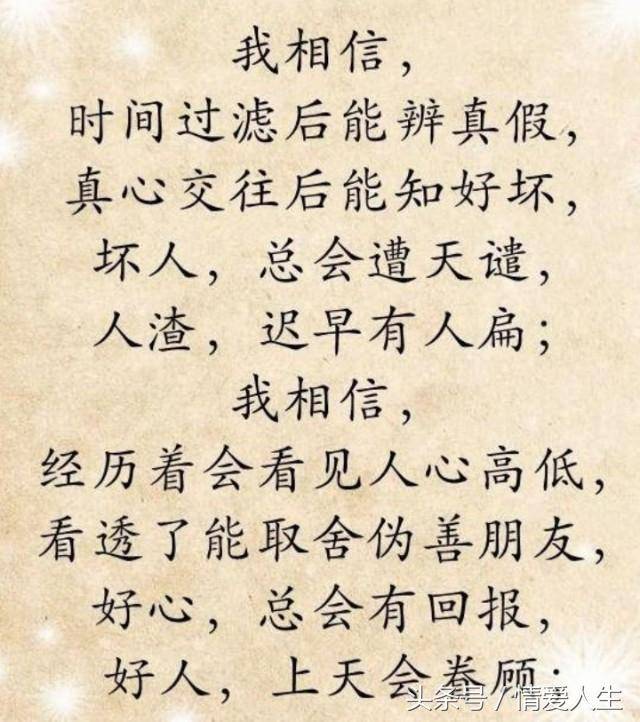 我相信，
时间过滤后能辨真假，
真心交往后能知好坏，
坏人，总会遭天谴，
人渣，迟早有人扁；
我相信，
经历着会看见人心高低，
看透了能取舍伪善朋友，
好心，总会有回报，
好人，上天会眷顾；
头条号／情爱人生